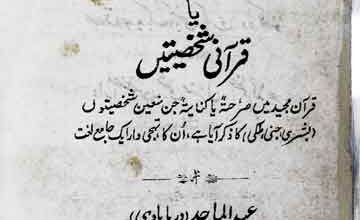 یا
قرآنی شخصیتیں
قرآن مجید میں صراحۃً یا کنایۃً جن متعین شخصیتوں
(بشری، جنی، ملکی) کا ذکر آیا ہے، اُن کا تہجی وار ایک جامع لغت
عبد الماجد (دریابادی)